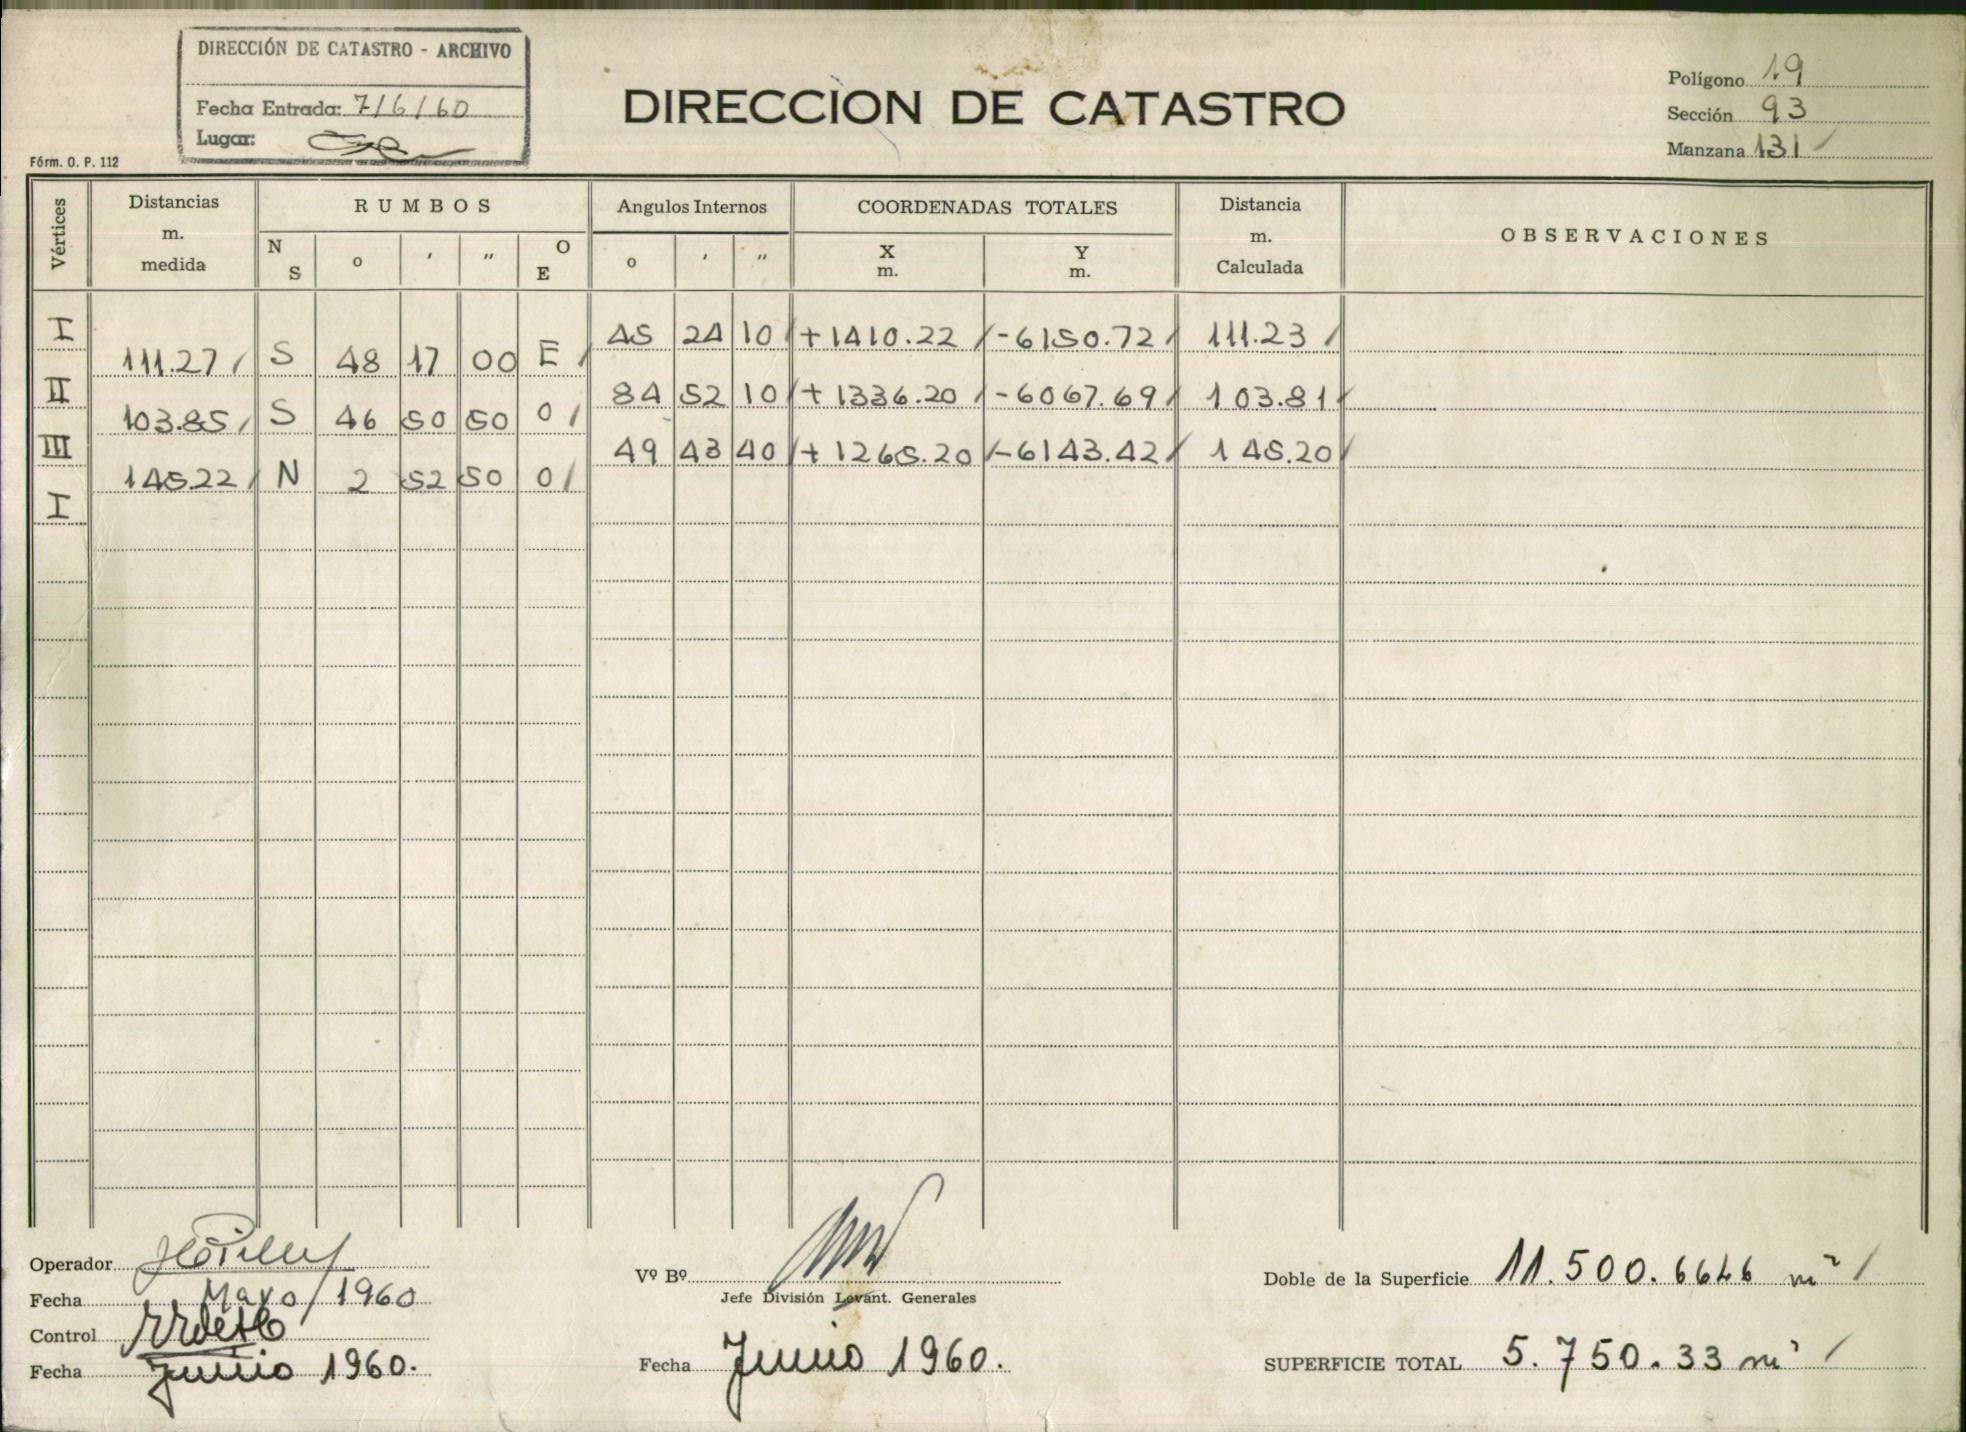 DIRECCIÓN DE CATASTRO - ARCHIVO
Fecha Entrada: 7/6/60
Lugar:
Fórm. O. P. 112
DIRECCION DE CATASTRO
Polígono 19
Sección 93
Manzana 131
Vértices Distancias m. medida RUMBOS Angulos Internos COORDENADAS TOTALES Distancia m. Calculada OBSERVACIONES
N S o ' " O E o ' " X m. Y m.
I 45 24 10 +1410.22 -6150.72 111.23
111.27 S 48 17 00 E
II 84 52 10 +1336.20 -6067.69 103.81
103.85 S 46 50 50 O
III 49 43 40 +1265.20 -6143.42 145.20
145.22 N 2 52 50 O
I
Operador
Fecha Mayo/1960
Control
Fecha Junio 1960.
Vº Bº
Jefe División Levant. Generales
Fecha Junio 1960.
Doble de la Superficie 11.500.6646 m²
SUPERFICIE TOTAL 5.750.33 m²